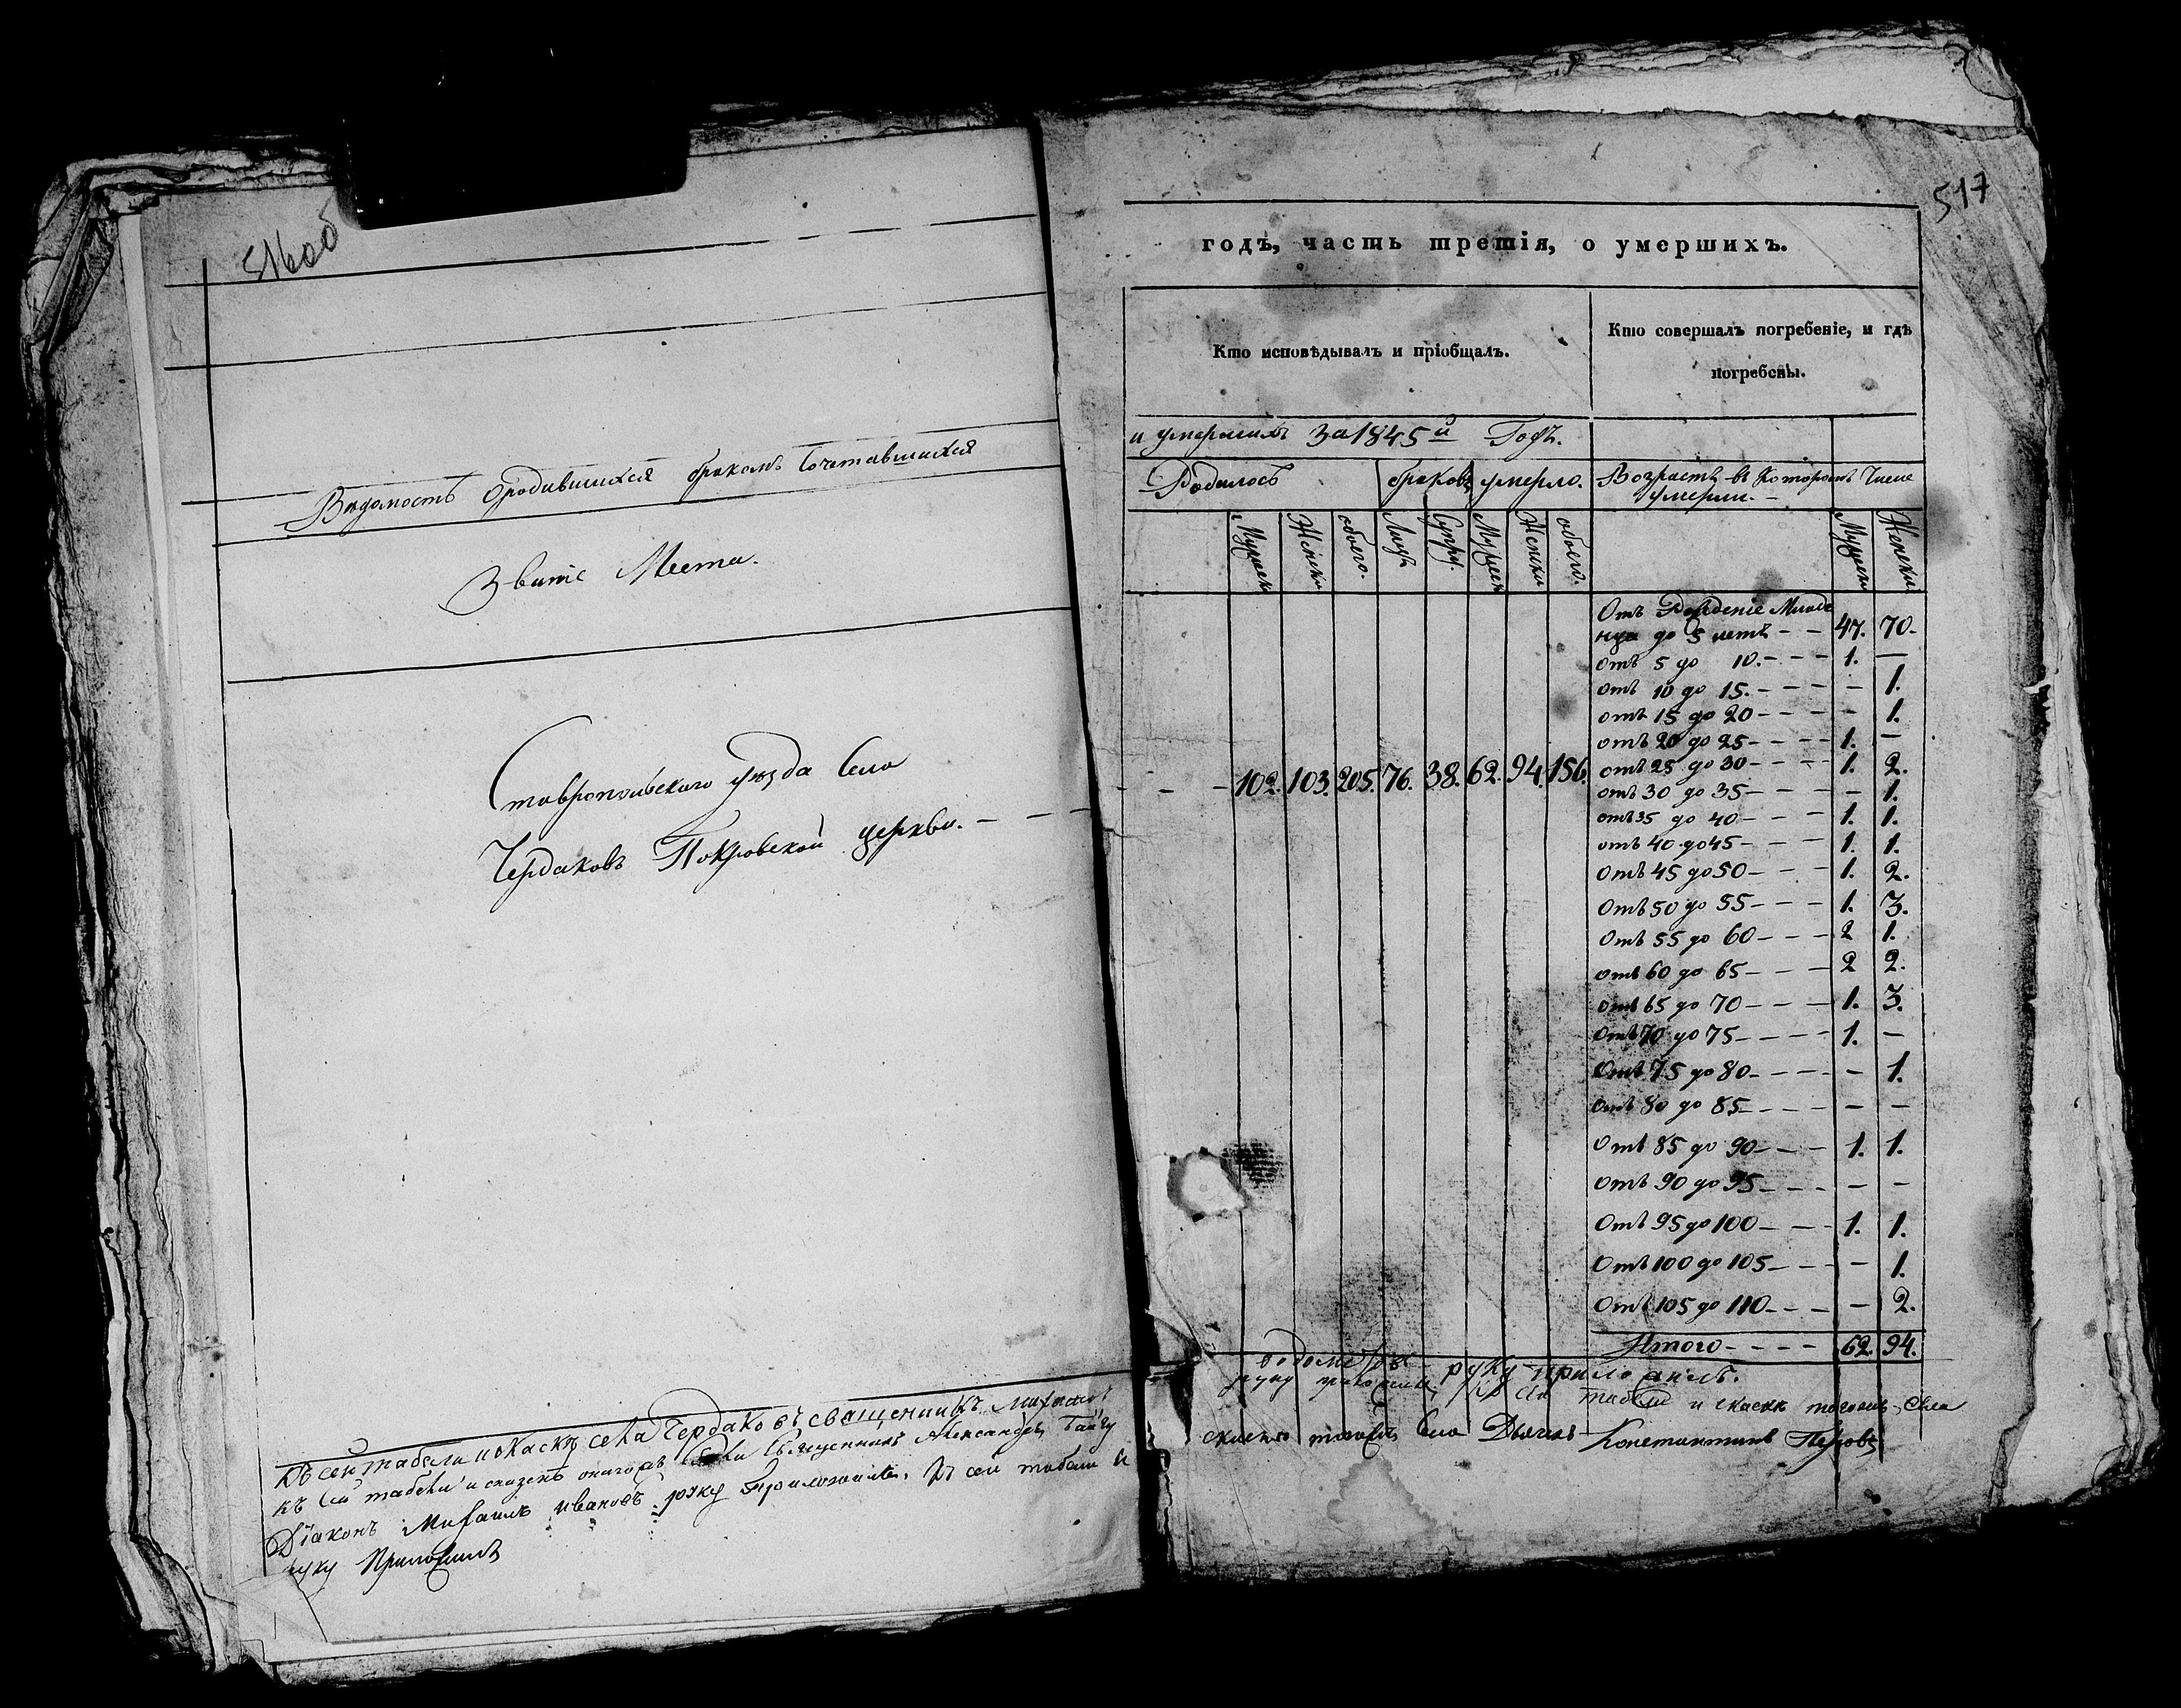 516об
Ведомость ородившихся бракомъ Сочетавшихся
Званіе Места.
Ставропольскаго уѣзда Село
Чердаковъ Покровской церкви. – – –
Къ сей табели искаску села Чердаковъ священникъ Михаилъ
къ Сей табели и сказкѣ оного Священникъ Александръ
Діаконъ Михаилъ ивановъ руку Приложилъ. Къ сей табели и
руку Приложилъ
517
годъ, часть третія, о умершихъ.
Кто исповѣдывалъ и пріобщалъ.
Кто совершалъ погребеніе, и гдѣ
погребены.
и умершихъ за 1845й Годъ.
Родилось браковъ умерло. Возрастъ въ Которомъ Числе
умерли. –
Мужеск Женска обоего. Лицъ Супру. Мужеск Женска обоего. Мужеск Женска
Отъ Рождение Младе
нца до 5 летъ – – 47. 70.
отъ 5 до 10. – – – 1. –
отъ 10 до 15. – – – – – 1.
отъ 15 до 20 – – – – – 1.
отъ 20 до 25 – – – – 1. –
– – – 102. 103. 205. 76. 38. 62. 94. 156. отъ 25 до 30 – – – – 1. 2.
отъ 30 до 35 – – – – – 1.
отъ 35 до 40 – – – 1. 1.
отъ 40 до 45 – – – 1. 1.
Отъ 45 до 50 – – – 1. 2.
Отъ 50 до 55 – – – 1. 3.
Отъ 55 до 60 – – – 2 1.
отъ 60 до 65 – – – 2 2.
отъ 65 до 70 – – – 1. 3.
Отъ 70 до 75 – – – – 1. –
Отъ 75 до 80 – – – – – 1.
Отъ 80 до 85 – – – – – –
Отъ 85 до 90 – – – 1. 1.
Отъ 90 до 95 – – – – –
Отъ 95 до 100 – – – 1. 1.
Отъ 100 до 105 – – – – 1.
Отъ 105 до 110 – – – – 2.
Итого – – – – 62. 94.
руку приложилъ.
руку приложилъ, Къ Сей табели и скаске тогожъ Села
скаске тогожъ Села Дьячекъ Константинъ Петровъ